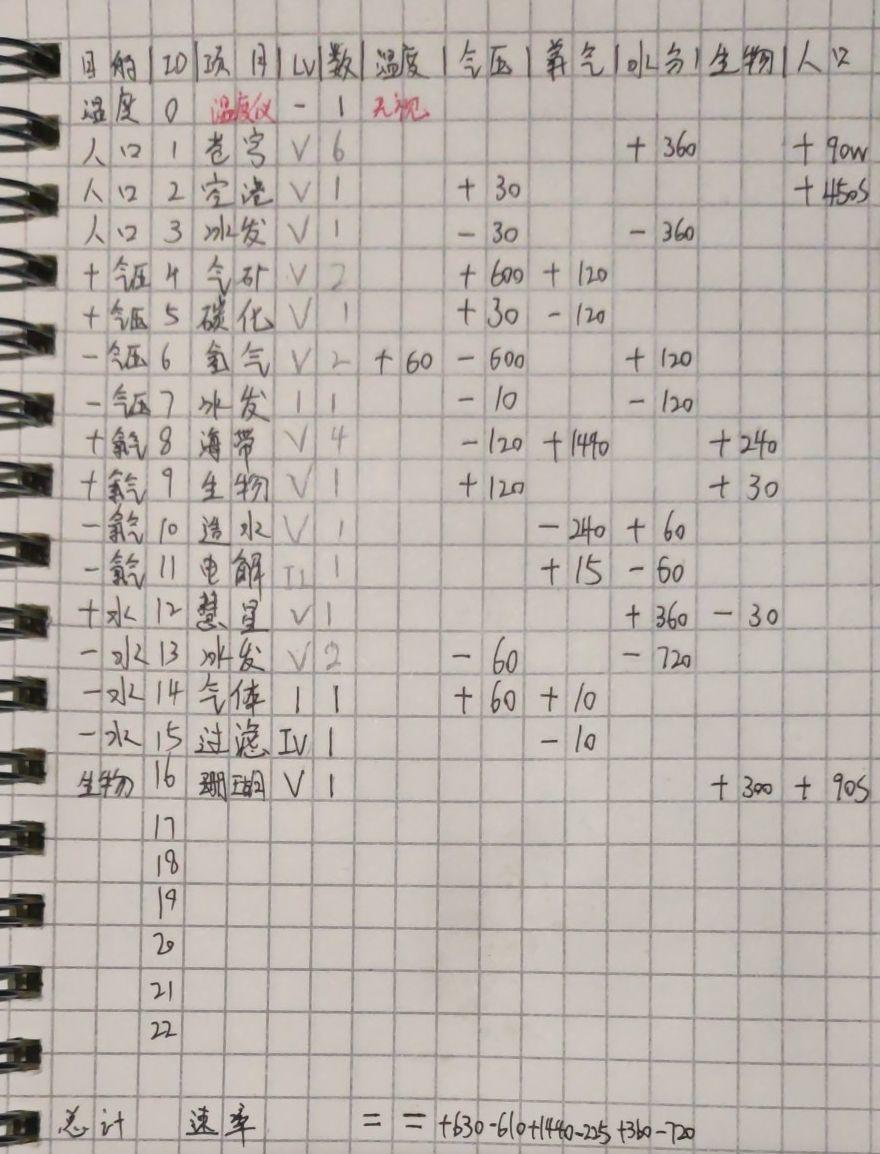 目的|ID|项目|LV|数|温度|气压|氧气|水分|生物|人口
温度 0 温度仪 - 1 无视
人口 1 苍穹 V 6 +360 +90W
人口 2 空港 V 1 +30 +450S
人口 3 水发 V 1 -30 -360
+气压 4 气矿 V 2 +600 +120
+气压 5 碳化 V 1 +30 -120
-气压 6 氢气 V 2 +60 -600 +120
-气压 7 水发 I 1 -10 -120
+氧气 8 海带 V 4 -120 +1440 +240
+氧气 9 生物 V 1 +120 +30
-氧气 10 造水 V 1 -240 +60
-氧气 11 电解 II 1 +15 -60
+水 12 慧星 V 1 +360 -30
-水 13 水发 V 2 -60 -720
-水 14 气体 I 1 +60 +10
-水 15 过滤 IV 1 -10
生物 16 珊瑚 V 1 +300 +90S
17
18
19
20
21
22
总计 速率 = = +630-610+1440-225+360-720